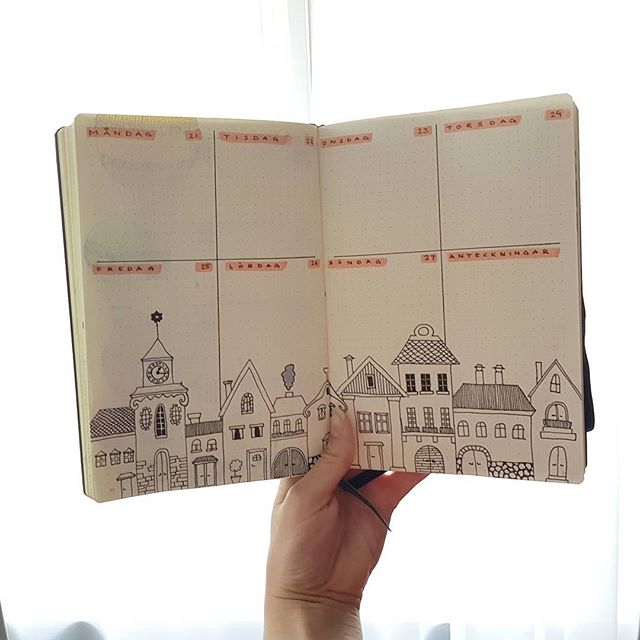 MÅNDAG 21
TISDAG 22
ONSDAG 23
TORSDAG 24
FREDAG 25
LÖRDAG 26
SÖNDAG 27
ANTECKNINGAR